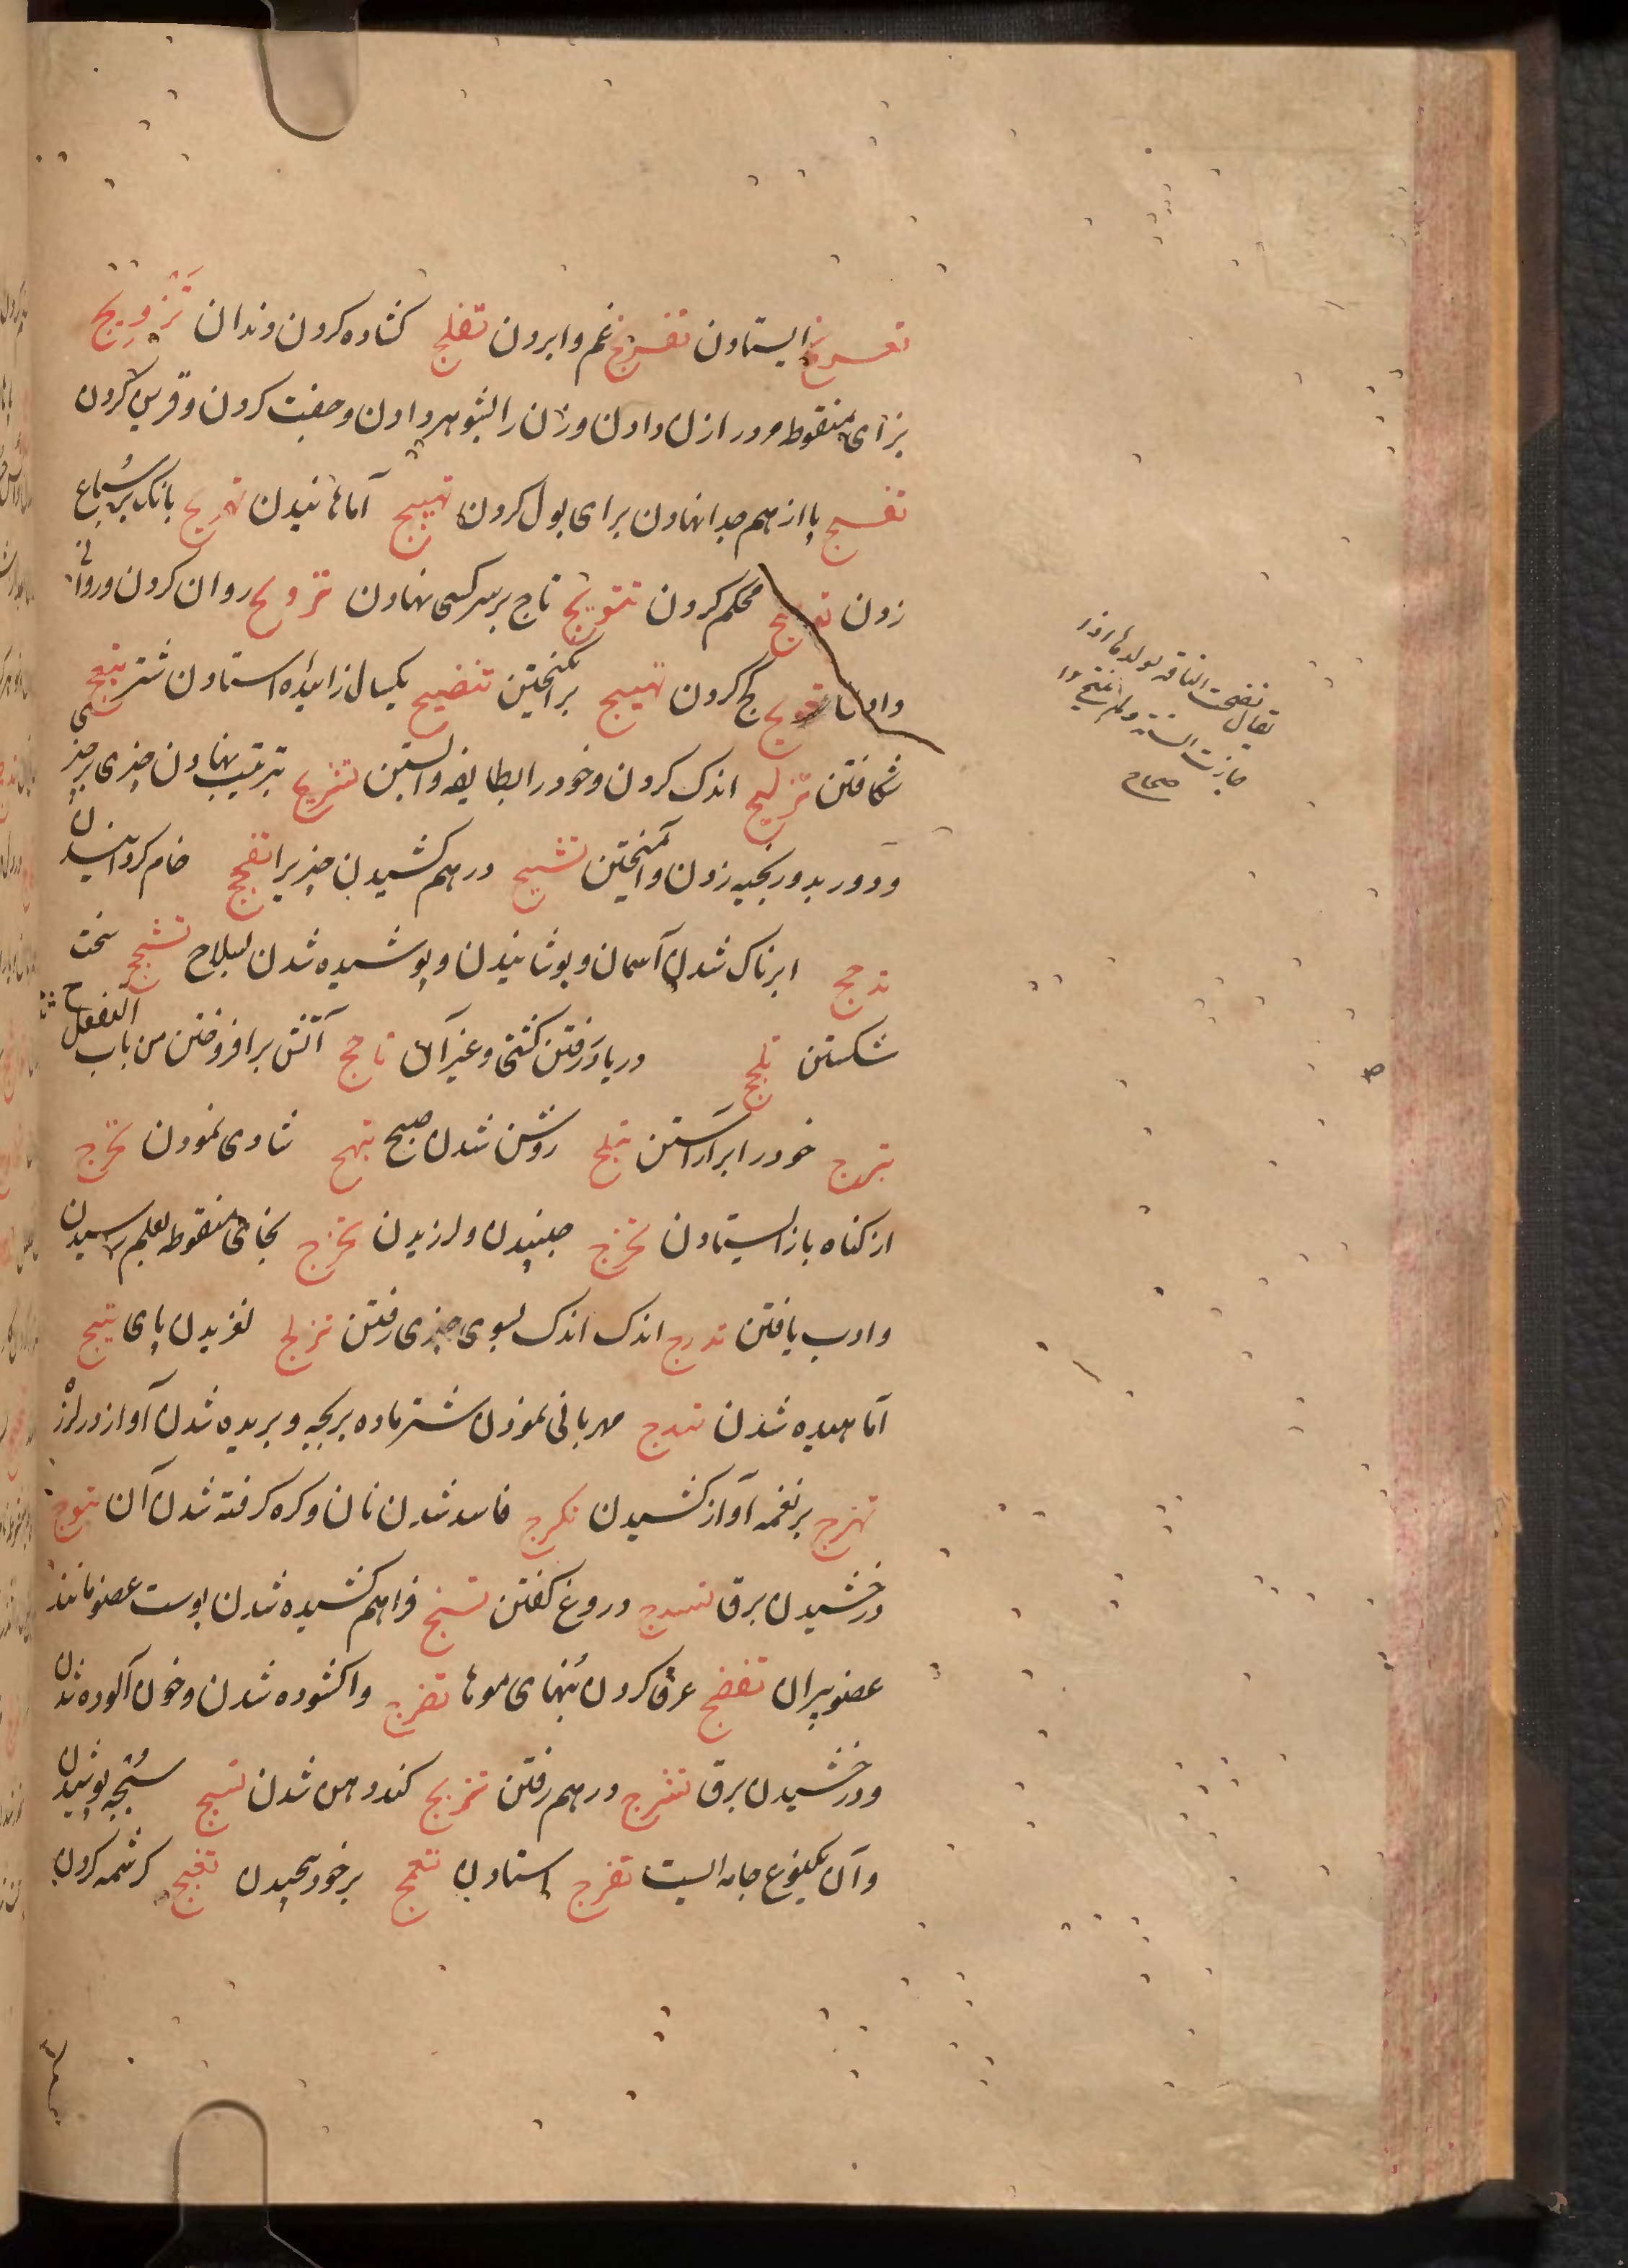 تعریج ایستادن تفریج غم وا بردن تفلیج کشاده کردن دندان تزویج
بزای منقوطه مرد را زن دادن و زن را بشوهر دادن و جفت کردن و قرین کردن
تفسیج پا از هم جدا نهادن برای بول کردن تهبیج آماهانیدن تهریج بانک بر سباع
زدن محکم کردن تتویج تاج بر سر کسی نهادن ترویج روان کردن و روائی
دادن تعویج کج کردن تهییج برانکیختن تنضیج یکسال زائیده استادن شتر تبعیج
شکافتن تزلیج اندک کردن و خود را بطایفه وابستن تشریج بترتیب نهادن چیزی بر چیزی
و دور بدور بخیه زدن و آمیختن تشنیج درهم کشیدن چیزیرا تفجیج خام کردانیدن
تدجج ابرناک شدن آسمان و پوشانیدن و پوشیده شدن بسلاح تشجج سخت
شکستن تلجج در یا در رفتن کشتی و غیر آن تاجج آتش برافروختن من باب التفعل
تبرج خود را برآراستن تبلج روشن شدن صبح تبهج شادی نمودن تحرج
از کناه باز ایستادن تخزج جنبیدن و لرزیدن تخرج بخای منقوطه بعلم رسیدن
و ادب یافتن تدرج اندک اندک بسوی چیزی رفتن تزلج لغزیدن پای تهبج
آماهیده شدن تهدج مهربانی نمودن شتر ماده بر بچه و بریده شدن آواز در لرز
تهزج بر نغمه آواز کشیدن تکرج فاسد شدن نان و کره کرفته شدن آن تبوج
درخشیدن برق تسدج دروغ کفتن تشنج فراهم کشیده شدن پوست عضو مانند
عضو پیران تفضج عرق کردن بنهای موها تفرج واکشوده شدن و خون آلوده شدن
و درخشیدن برق تشرج درهم رفتن تمزج کند دهن شدن تسبج سبجه پوشیدن
و آن یکنوع جامه ایست تعرج استادن تعمج بر خود پیچیدن تغنج کرشمه کردن
یقال نضجت الناقة بولدها اذا
جازت السنة ولم تنتج
صحاح